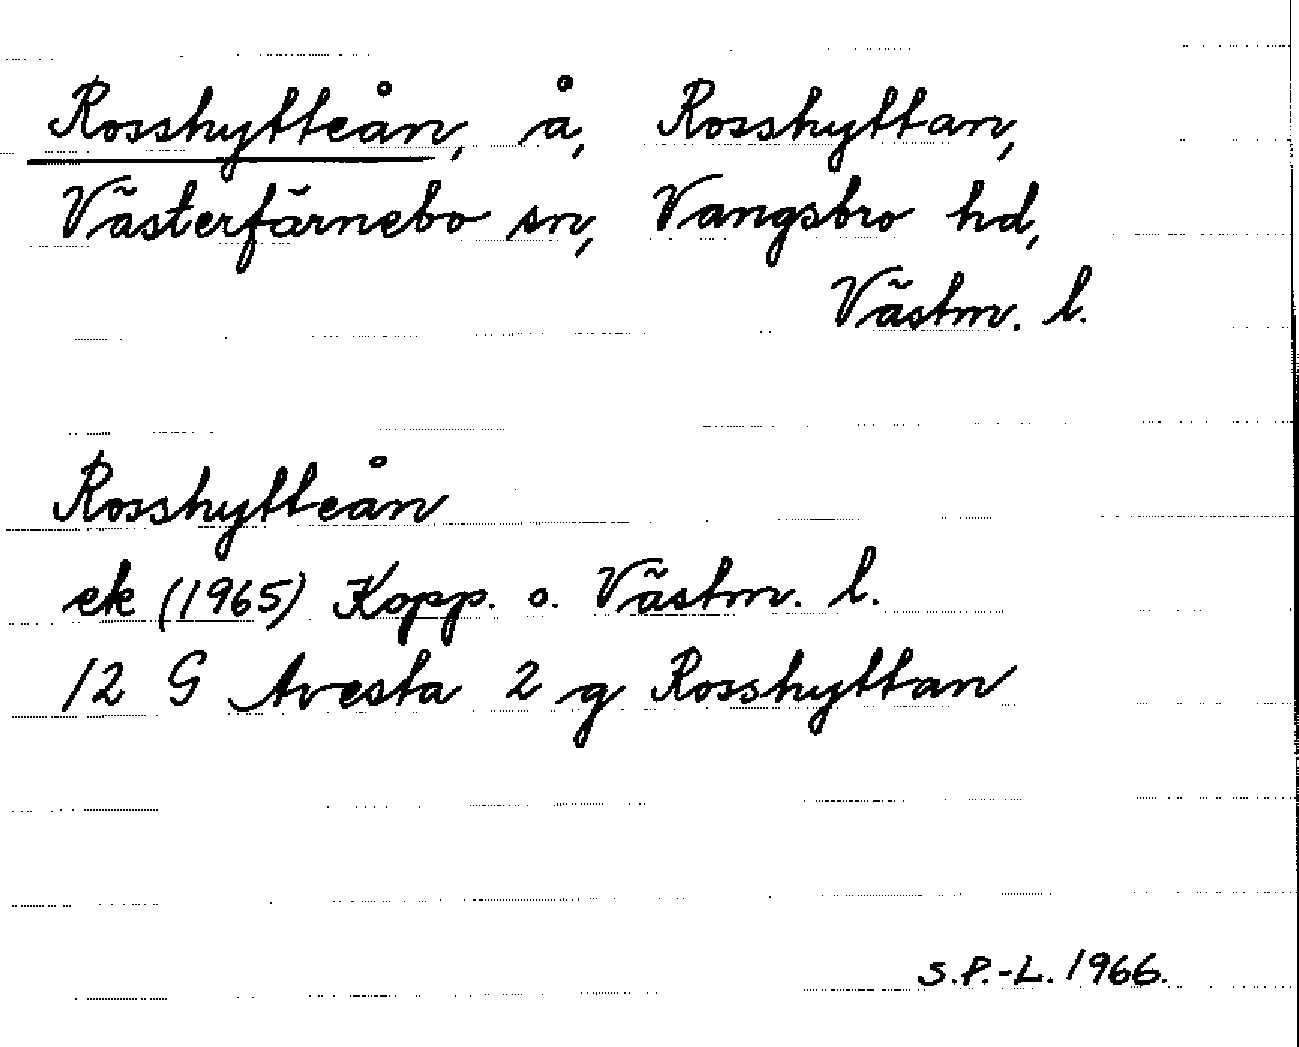 Rosshytteån, å, Rosshyttan,
Västerfärnebo sn, Vangsbro hd,
Västm. l.
Rosshytteån
ek (1965) Kopp. o. Västm. l.
12 G Avesta 2 g Rosshyttan
S.P.-L. 1966.